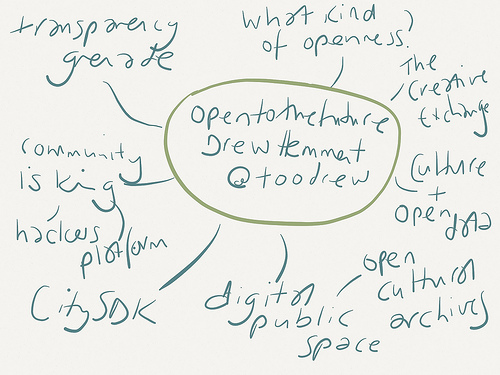 transparency
grenade
what kind
of openness?
The
Creative
Exchange
opentothefuture
Drew Hemment
@toodrew
community
is king
hackers
platform
Culture
+
open data
CitySDK
digital
public
space
open
cultural
archives